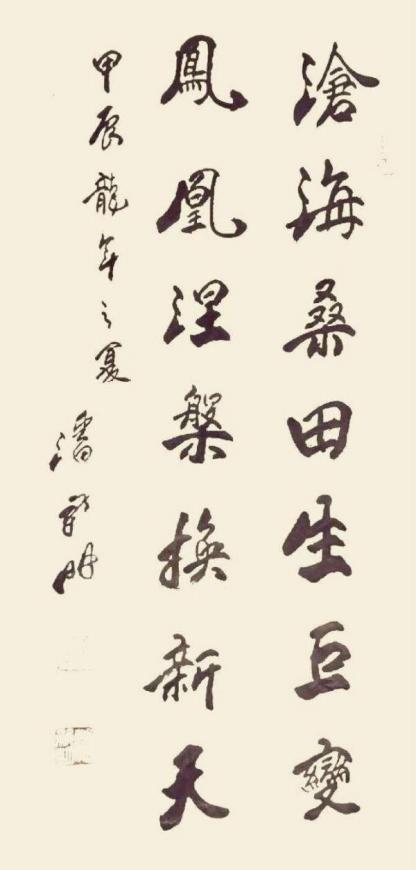 滄海桑田生巨變
鳳凰涅槃換新天
甲辰龍年之夏
潘